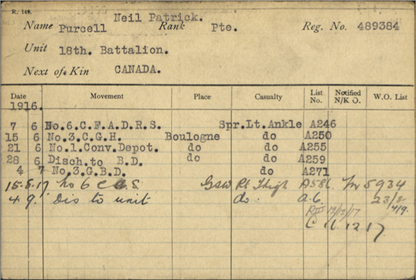 R. 149.
Neil Patrick.
Name Purcell Rank Pte. Reg. No. 489384
Unit 18th. Battalion.
Next of Kin CANADA.
Date Movement Place Casualty List No. Notified N/K O. W.O. List
1916.
7 6 No.6.C.F.A.D.R.S. Spr.Lt.Ankle A246
15 6 No.3.C.G.H. Boulogne do A250
21 6 No.1.Conv.Depot. do do A255
28 6 Disch.to B.D. do do A259
4 7 No.3.G.B.D. do A271
15.8.17 No 6 CCS GSW Rt Thigh A586 5934
4 9. Dis to unit do. a6 23/2
4/9.
C 11 12 17